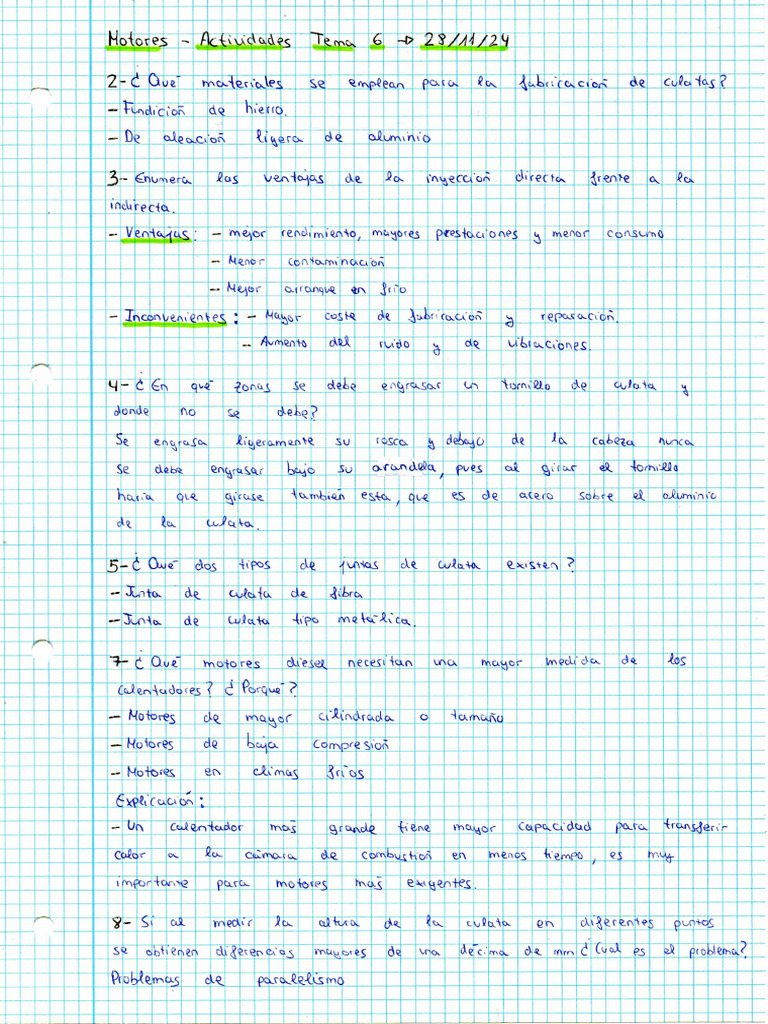 Motores - Actividades Tema 6 → 28/11/24
2-¿Qué materiales se emplean para la fabricación de culatas?
- Fundición de hierro.
- De aleación ligera de aluminio
3- Enumera las ventajas de la inyección directa frente a la
indirecta.
- Ventajas: - mejor rendimiento, mayores prestaciones y menor consumo
- Menor contaminación
- Mejor arranque en frio
- Inconvenientes: - Mayor coste de fabricación y reparación.
- Aumento del ruido y de vibraciones.
4-¿En qué zonas se debe engrasar un tornillo de culata y
donde no se debe?
Se engrasa ligeramente su rosca y debajo de la cabeza nunca
se debe engrasar bajo su arandela, pues al girar el tornillo
haria que girase también esta, que es de acero sobre el aluminio
de la culata.
5-¿Qué dos tipos de juntas de culata existen?
- Junta de culata de fibra
- Junta de culata tipo metálica.
7-¿Qué motores diesel necesitan una mayor medida de los
calentadores? ¿Porqué?
- Motores de mayor cilindrada o tamaño
- Motores de baja compresión
- Motores en climas fríos
Explicación:
- Un calentador más grande tiene mayor capacidad para transferir
calor a la cámara de combustión en menos tiempo, es muy
importante para motores más exigentes.
8- Si al medir la altura de la culata en diferentes puntos
se obtienen diferencias mayores de una décima de mm ¿Cual es el problema?
Problemas de paralelismo